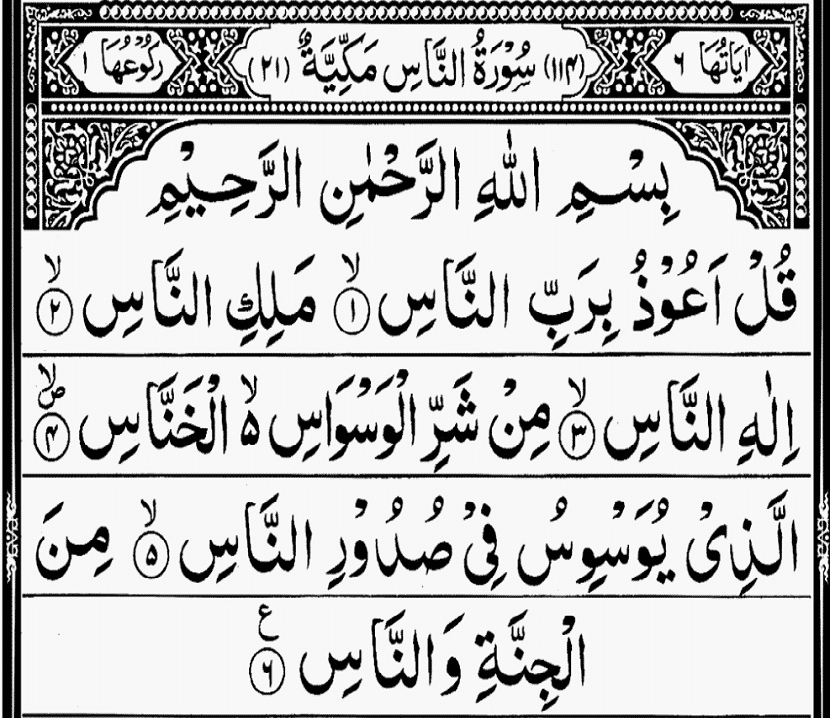 اٰيَاتُهَا ٦ (١١٤) سُوْرَةُ النَّاسِ مَكِّيَّةٌ (٢١) رُكُوْعُهَا ١
بِسْمِ اللّٰهِ الرَّحْمٰنِ الرَّحِيْمِ
قُلْ اَعُوْذُ بِرَبِّ النَّاسِ ۙ‏﴿۱﴾ مَلِكِ النَّاسِ ۙ‏﴿۲﴾
اِلٰهِ النَّاسِ ۙ‏﴿۳﴾ مِنْ شَرِّ الْوَسْوَاسِ ۙ۵ الْخَنَّاسِ ۪ۙ‏﴿۴﴾
الَّذِىْ يُوَسْوِسُ فِىْ صُدُوْرِ النَّاسِ ۙ‏﴿۵﴾ مِنَ
الْجِنَّةِ وَالنَّاسِ ع ﴿۶﴾